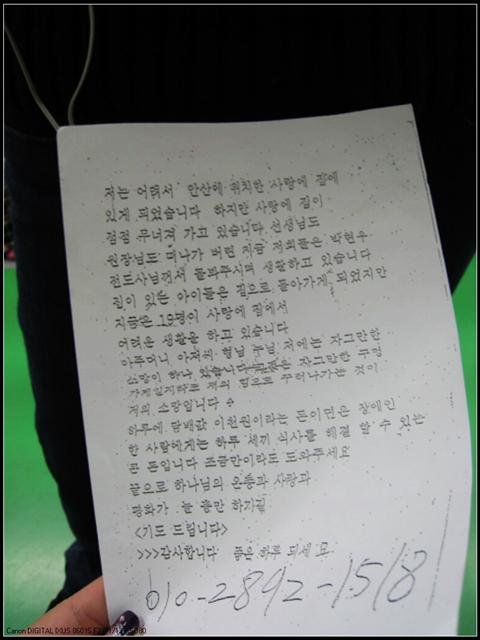 저는 어려서 안산에 위치한 사랑에 집에
있게 되었습니다 하지만 사랑에 집이
점점 무너져 가고 있습니다 선생님도
원장님도 떠나가 버린 지금 저희들은 박현우
전도사님께서 돌봐주시며 생활하고 있습니다
집이 있는 아이들은 집으로 돌아가게 되었지만
지금은 19명이 사랑에 집에서
어려운 생활을 하고 있습니다
아주머니 아저씨 형님 누님 저에는 자그만한
소망이 하나 있습니다 자그만한 구멍
가게일지라도 저의 힘으로 꾸려나가는 것이
저의 소망입니다
하루에 담배값 이천원이라는 돈이면은 장애인
한 사람에게는 하루 세끼 식사를 해결 할 수 있는
큰 돈입니다 조금만이라도 도와주세요
끝으로 하나님의 은총과 사랑과
평화가 늘 충만 하기길
<기도 드립니다>
>>>감사합니다 좁은하루 되세요
010-2892-1518
Canon DIGITAL IXUS 860IS